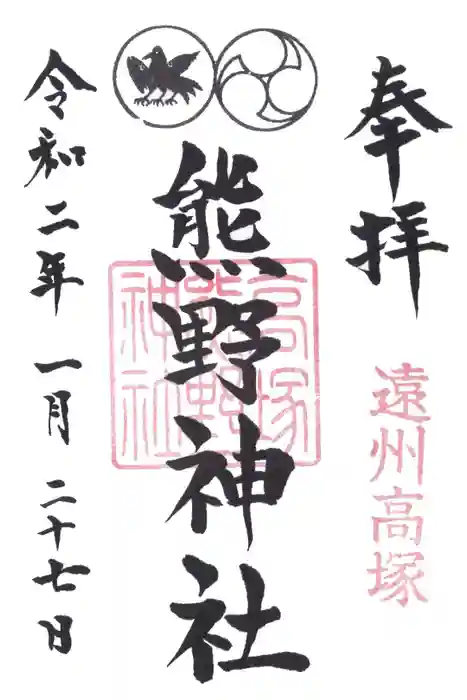 奉拝
遠州高塚
熊野神社
高塚
熊野
神社
令和二年一月二十七日